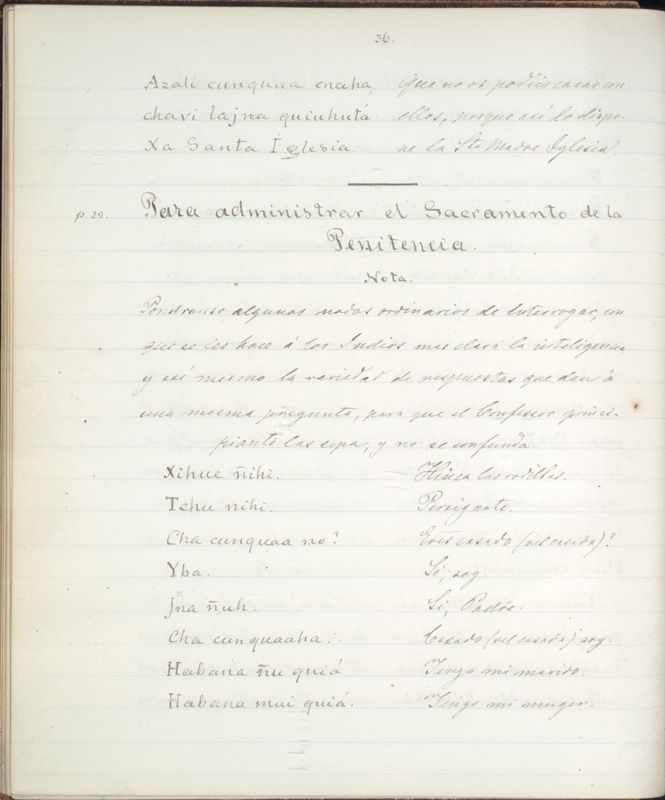 36.
Azali cunquaa enaha, Que no os podéis casar con
chavi lajna quiuhutá ellos, porque así lo dispo-
Xa Santa Iglesia. ne la Sta Madre Iglesia.
p. 29. Para administrar el Sacramento de la
Penitencia.
Nota.
Pondranse algunos modos ordinarios de interrogar, con
que se les hace á los Indios mas clara la inteligencia
y asi mesmo la variedad de respuestas que dan á
una mesma pregunta, para que el Confesor princi-
piante las sepa, y no se confunda.
Xihue ñihi. Hinca las rodillas.
Tehu nihi. Persignate.
Cha cunquaa no? Eres casado (vel casada)?
Yba. Si, soy.
Jna ñuh. Si, Padre.
Cha cunquaaha. Casado (vel casada) soy.
Habana ñu quiá Tengo mi marido.
Habana mui quiá. Tengo mi muger.